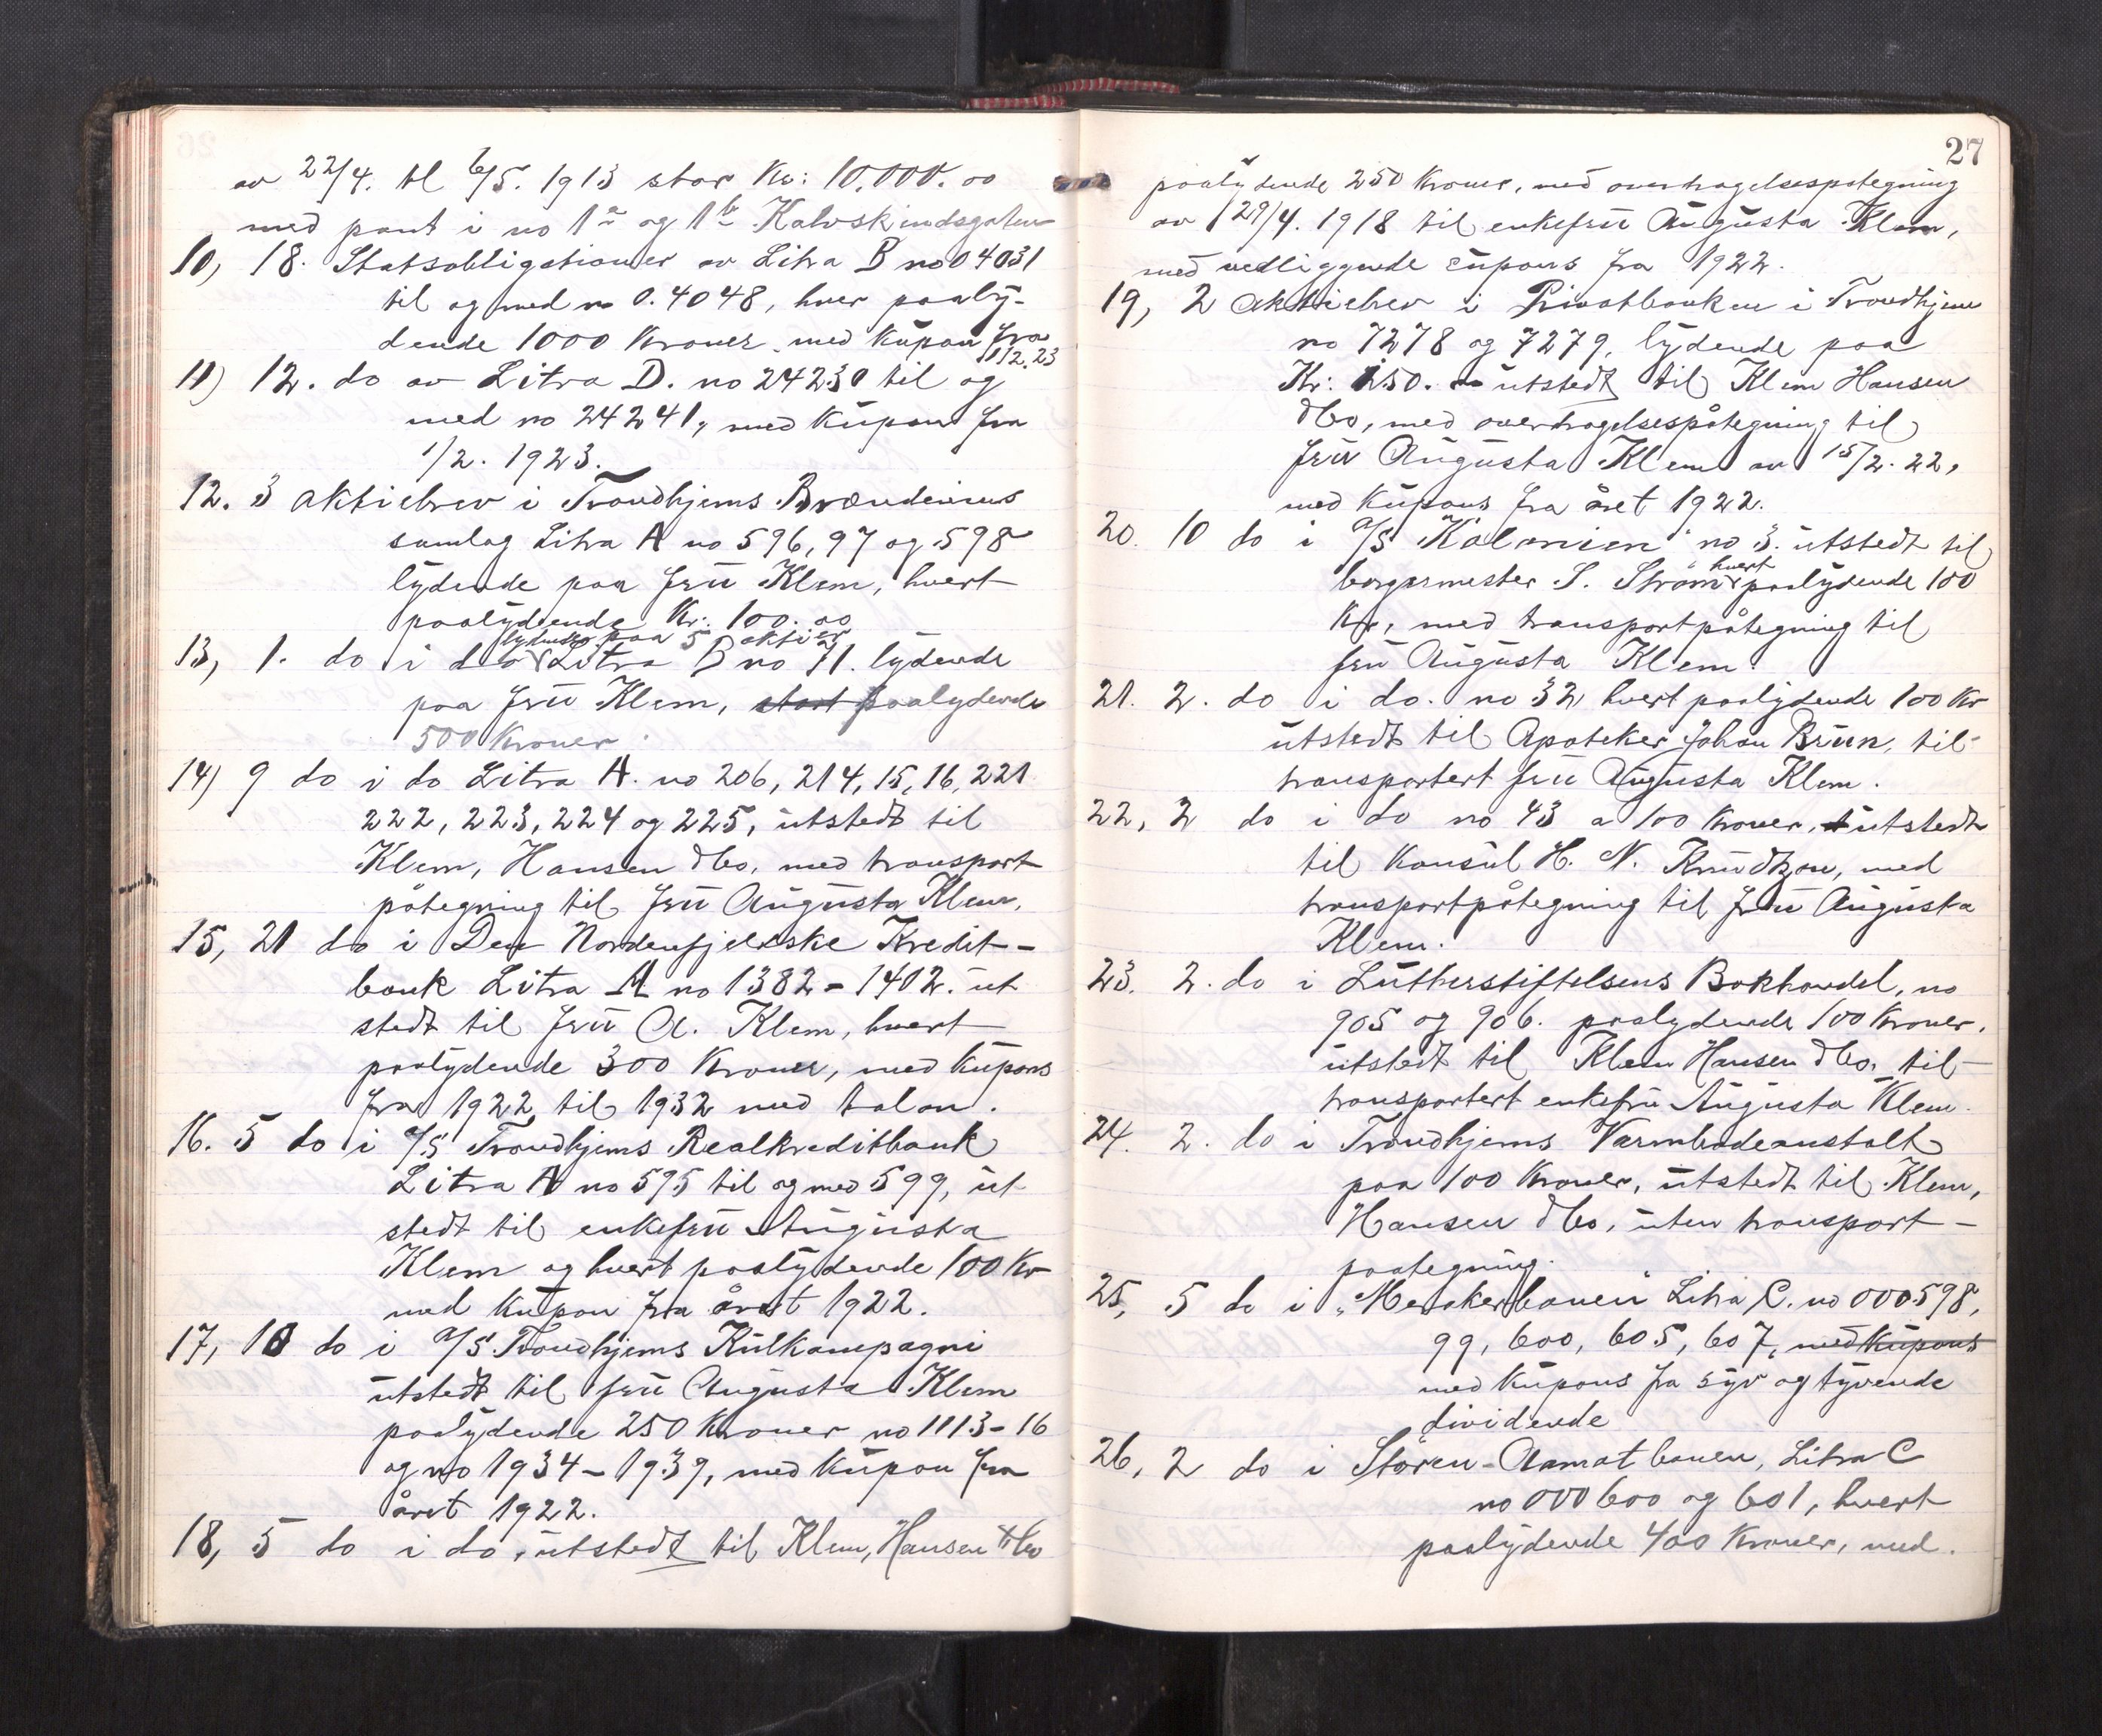 av 22/4. tl 6/5. 1913 stor Kr: 10.000.00
med pant i no 1a og 1b Kalvskindsgaten
10, 18. Statsobligationer av Litra B no 04031
til og med no 0.4048, hver paaly-
dende 1000 Kroner med Kupon fra
1/2.23
11) 12. do av Litra D. no 24230 til og
med no 24241, med Kupon fra
1/2. 1923.
12. 3 aktiebrev i Trondhjems Brændevins
samlag Litra A no 596, 97 og 598
lydende paa fru Klem, hvert
paalydende Kr: 100.00
lydende paa 5 aktier
13, 1. do i do Litra B no 71. lydende
paa fru Klem, stort paalydende
500 Kroner.
14) 9 do i do Litra A. no 206, 214, 15, 16, 221
222, 223, 224 og 225, utstedt til
Klem, Hansen & Co, med transport
påtegning til fru Augusta Klem.
15, 21 do i Den Nordenfjeldske Kredit-
bank Litra A no 1382-1402. ut
stedt til fru A. Klem, hvert
paalydende 300 Kroner, med Kupons
fra 1922 til 1932 med talon.
16. 5 do i A/S Trondhjems Realkreditbank
Litra A no 595 til og med 599, ut
stedt til enkefru Augusta
Klem og hvert paalydende 100 Kr
med Kupon fra året 1922.
17, 10 do i A/S Trondhjems Kulkompagni
utstedt til fru Augusta Klem
paalydende 250 Kroner no 1113-16
og no 1934-1939, med Kupon fra
året 1922.
18, 5 do i do, utstedt til Klem, Hansen & Co
27
paalydende 250 Kroner, med overdragelsespategning
av 29/4. 1918 til enkefru Augusta Klem,
med vedliggende cupons fra 1922.
19, 2 aktiebrev i Privatbanken i Trondhjem
no 7278 og 7279, lydende paa
Kr: 250. utstedt til Klem Hansen
& Co, med overdragelsespåtegning til
fru Augusta Klem av 15/2. 22,
med Kupons fra året 1922.
20. 10 do i A/S "Kolonien" no 3. utstedt til
hvert
borgermester S. Strøm paalydende 100
Kr, med transportpåtegning til
fru Augusta Klem.
21. 2. do i do. no 32 hvert paalydende 100 Kr
utstedt til Apoteker Johan Brun, til-
transportert fru Augusta Klem.
22, 2 do i do no 43 a 100 Kroner, utstedt
til Konsul H. N. Knudtzon, med
transportpåtegning til fru Augusta
Klem.
23. 2. do i Lutherstiftelsens Bokhandel, no
905 og 906. paalydende 100 Kroner,
utstedt til Klem Hansen & Co. til-
transportert enkefru Augusta Klem.
24. 2. do i Trondhjems Varmbadeanstalt
paa 100 Kroner, utstedt til Klem,
Hansen & Co, uten transport-
paategning.
25, 5 do i "Merakerbanen" Litra C. no 000598,
99, 600, 605, 607, med Kupons
med Kupons fra syv og tyvende
dividende
26, 2 do i Støren-Aamotbanen, Litra C
no 000600 og 601, hvert
paalydende 400 Kroner, med.